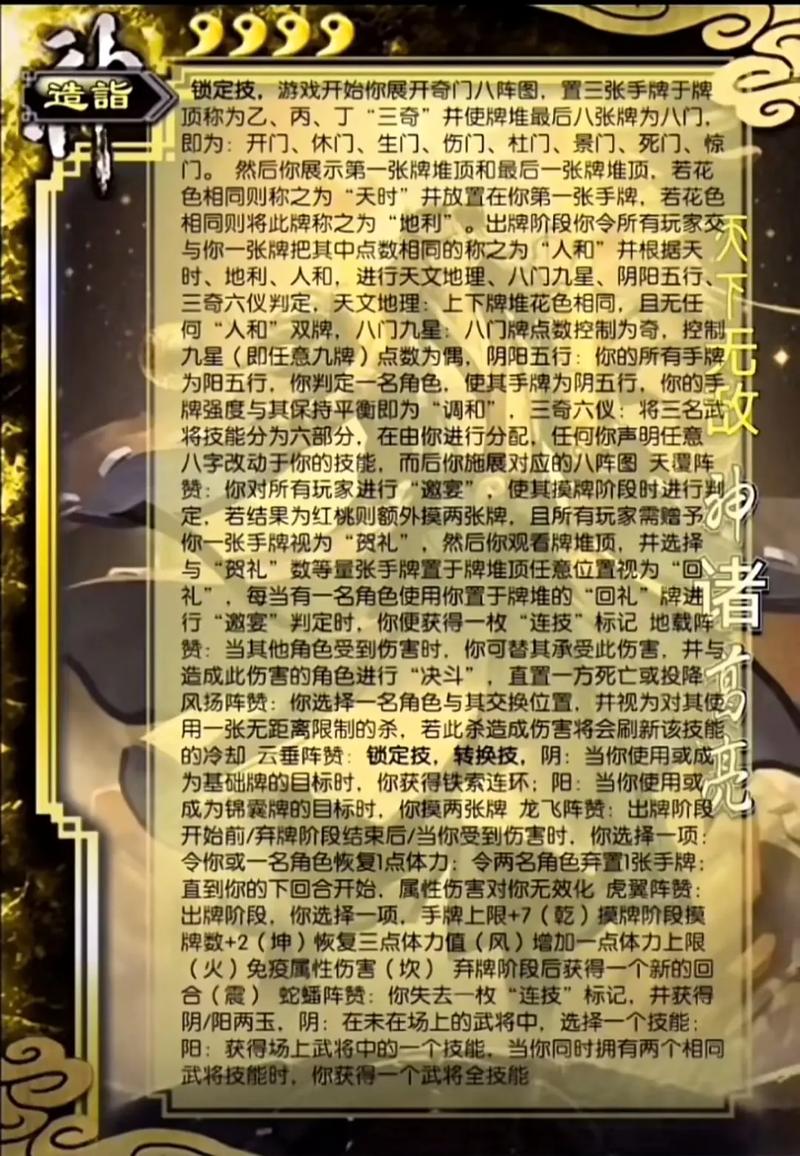 神
9999
造诣
锁定技，游戏开始你展开奇门八阵图，置三张手牌于牌
顶称为乙、丙、丁“三奇”并使牌堆最后八张牌为八门，
即为：开门、休门、生门、伤门、杜门、景门、死门、惊
门。 然后你展示第一张牌堆顶和最后一张牌堆顶，若花
色相同则称之为“天时”并放置在你第一张手牌，若花色
相同则将此牌称之为“地利”。出牌阶段你令所有玩家交
与你一张牌把其中点数相同的称之为“人和”并根据天
时、地利、人和，进行天文地理、八门九星、阴阳五行、
三奇六仪判定，天文地理：上下牌堆花色相同，且无任
何“人和”双牌，八门九星：八门牌点数控制为奇，控制
九星（即任意九牌）点数为偶，阴阳五行：你的所有手牌
为阳五行，你判定一名角色，使其手牌为阴五行，你的手
牌强度与其保持平衡即为“调和”，三奇六仪：将三名武
将技能分为六部分，在由你进行分配，任何你声明任意
八字改动于你的技能，而后你施展对应的八阵图 天覆阵
赞：你对所有玩家进行“邀宴”，使其摸牌阶段时进行判
定，若结果为红桃则额外摸两张牌，且所有玩家需赠予
你一张手牌视为“贺礼”，然后你观看牌堆顶，并选择
与“贺礼”数等量张手牌置于牌堆顶任意位置视为“回
礼”，每当有一名角色使用你置于牌堆的“回礼”牌进
行“邀宴”判定时，你便获得一枚“连技”标记 地载阵
赞：当其他角色受到伤害时，你可替其承受此伤害，并与
造成此伤害的角色进行“决斗”，直置一方死亡或投降
风扬阵赞：你选择一名角色与其交换位置，并视为对其使
用一张无距离限制的杀，若此杀造成伤害将会刷新该技能
的冷却 云垂阵赞：锁定技，转换技，阴：当你使用或成
为基础牌的目标时，你获得铁索连环；阳：当你使用或
成为锦囊牌的目标时，你摸两张牌 龙飞阵赞：出牌阶段
开始前/弃牌阶段结束后/当你受到伤害时，你选择一项：
令你或一名角色恢复1点体力；令两名角色弃置1张手牌；
直到你的下回合开始，属性伤害对你无效化 虎翼阵赞：
出牌阶段，你选择一项，手牌上限+7（乾）摸牌阶段摸
牌数+2（坤）恢复三点体力值（风）增加一点体力上限
（火）免疫属性伤害（坎） 弃牌阶段后获得一个新的回
合（震） 蛇蟠阵赞：你失去一枚“连技”标记，并获得
阴/阳两玉，阴：在未在场上的武将中，选择一个技能；
阳：获得场上武将中的一个技能，当你同时拥有两个相同
武将技能时，你获得一个武将全技能
天下无敌
神诸高亮